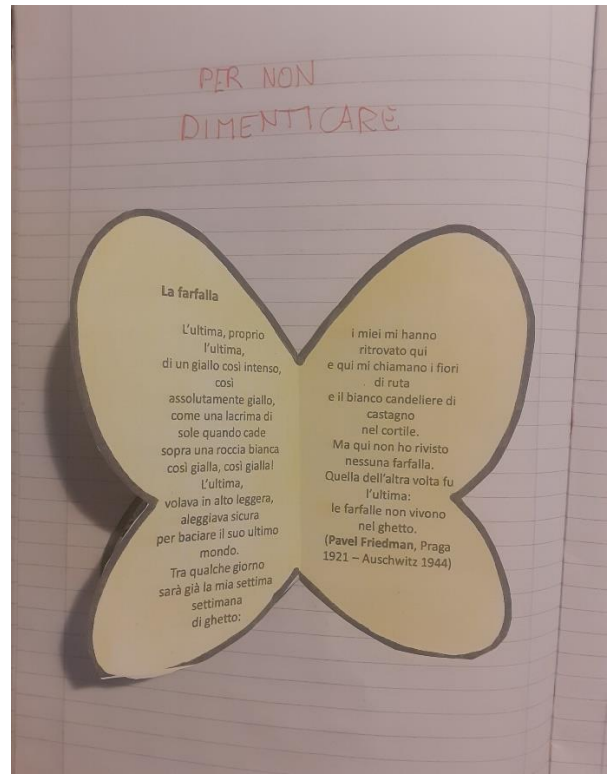 PER NON
DIMENTICARE
La farfalla
L'ultima, proprio
l'ultima,
di un giallo così intenso,
così
assolutamente giallo,
come una lacrima di
sole quando cade
sopra una roccia bianca
così gialla, così gialla!
L'ultima,
volava in alto leggera,
aleggiava sicura
per baciare il suo ultimo
mondo.
Tra qualche giorno
sarà già la mia settima
settimana
di ghetto:
i miei mi hanno
ritrovato qui
e qui mi chiamano i fiori
di ruta
e il bianco candeliere di
castagno
nel cortile.
Ma qui non ho rivisto
nessuna farfalla.
Quella dell'altra volta fu
l'ultima:
le farfalle non vivono
nel ghetto.
(Pavel Friedman, Praga
1921 – Auschwitz 1944)